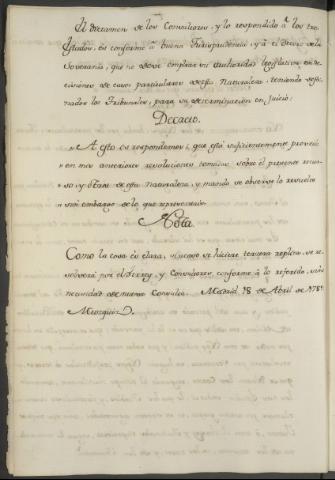 El dictamen de los Consultores, y lo respondido à los tres
Estados, es conforme à buena Jurisprudencia, y à el decoro de la
Soberania, que no debe emplear su authoridad legislativa en de-
cisiones de casos particulares de esta naturaleza, teniendo desti-
nados los Tribunales, para su determinacion en Juicio:
Decreto.
A esto os respondemos: que está suficientemente proveido
en mis anteriores resoluciones tomadas sobre el presente recur-
so, y otros de esta naturaleza, y mando se observe lo resuelto
sin embargo de lo que representais.
Nota
Como la cosa es clara, si acaso se hiciere tercera replica, se re-
solverá por el Virrey, y Consultores, conforme à lo referido, sin
necesidad de nueva Consulta. Madrid 18 de Abril de 178
Muzquiz.